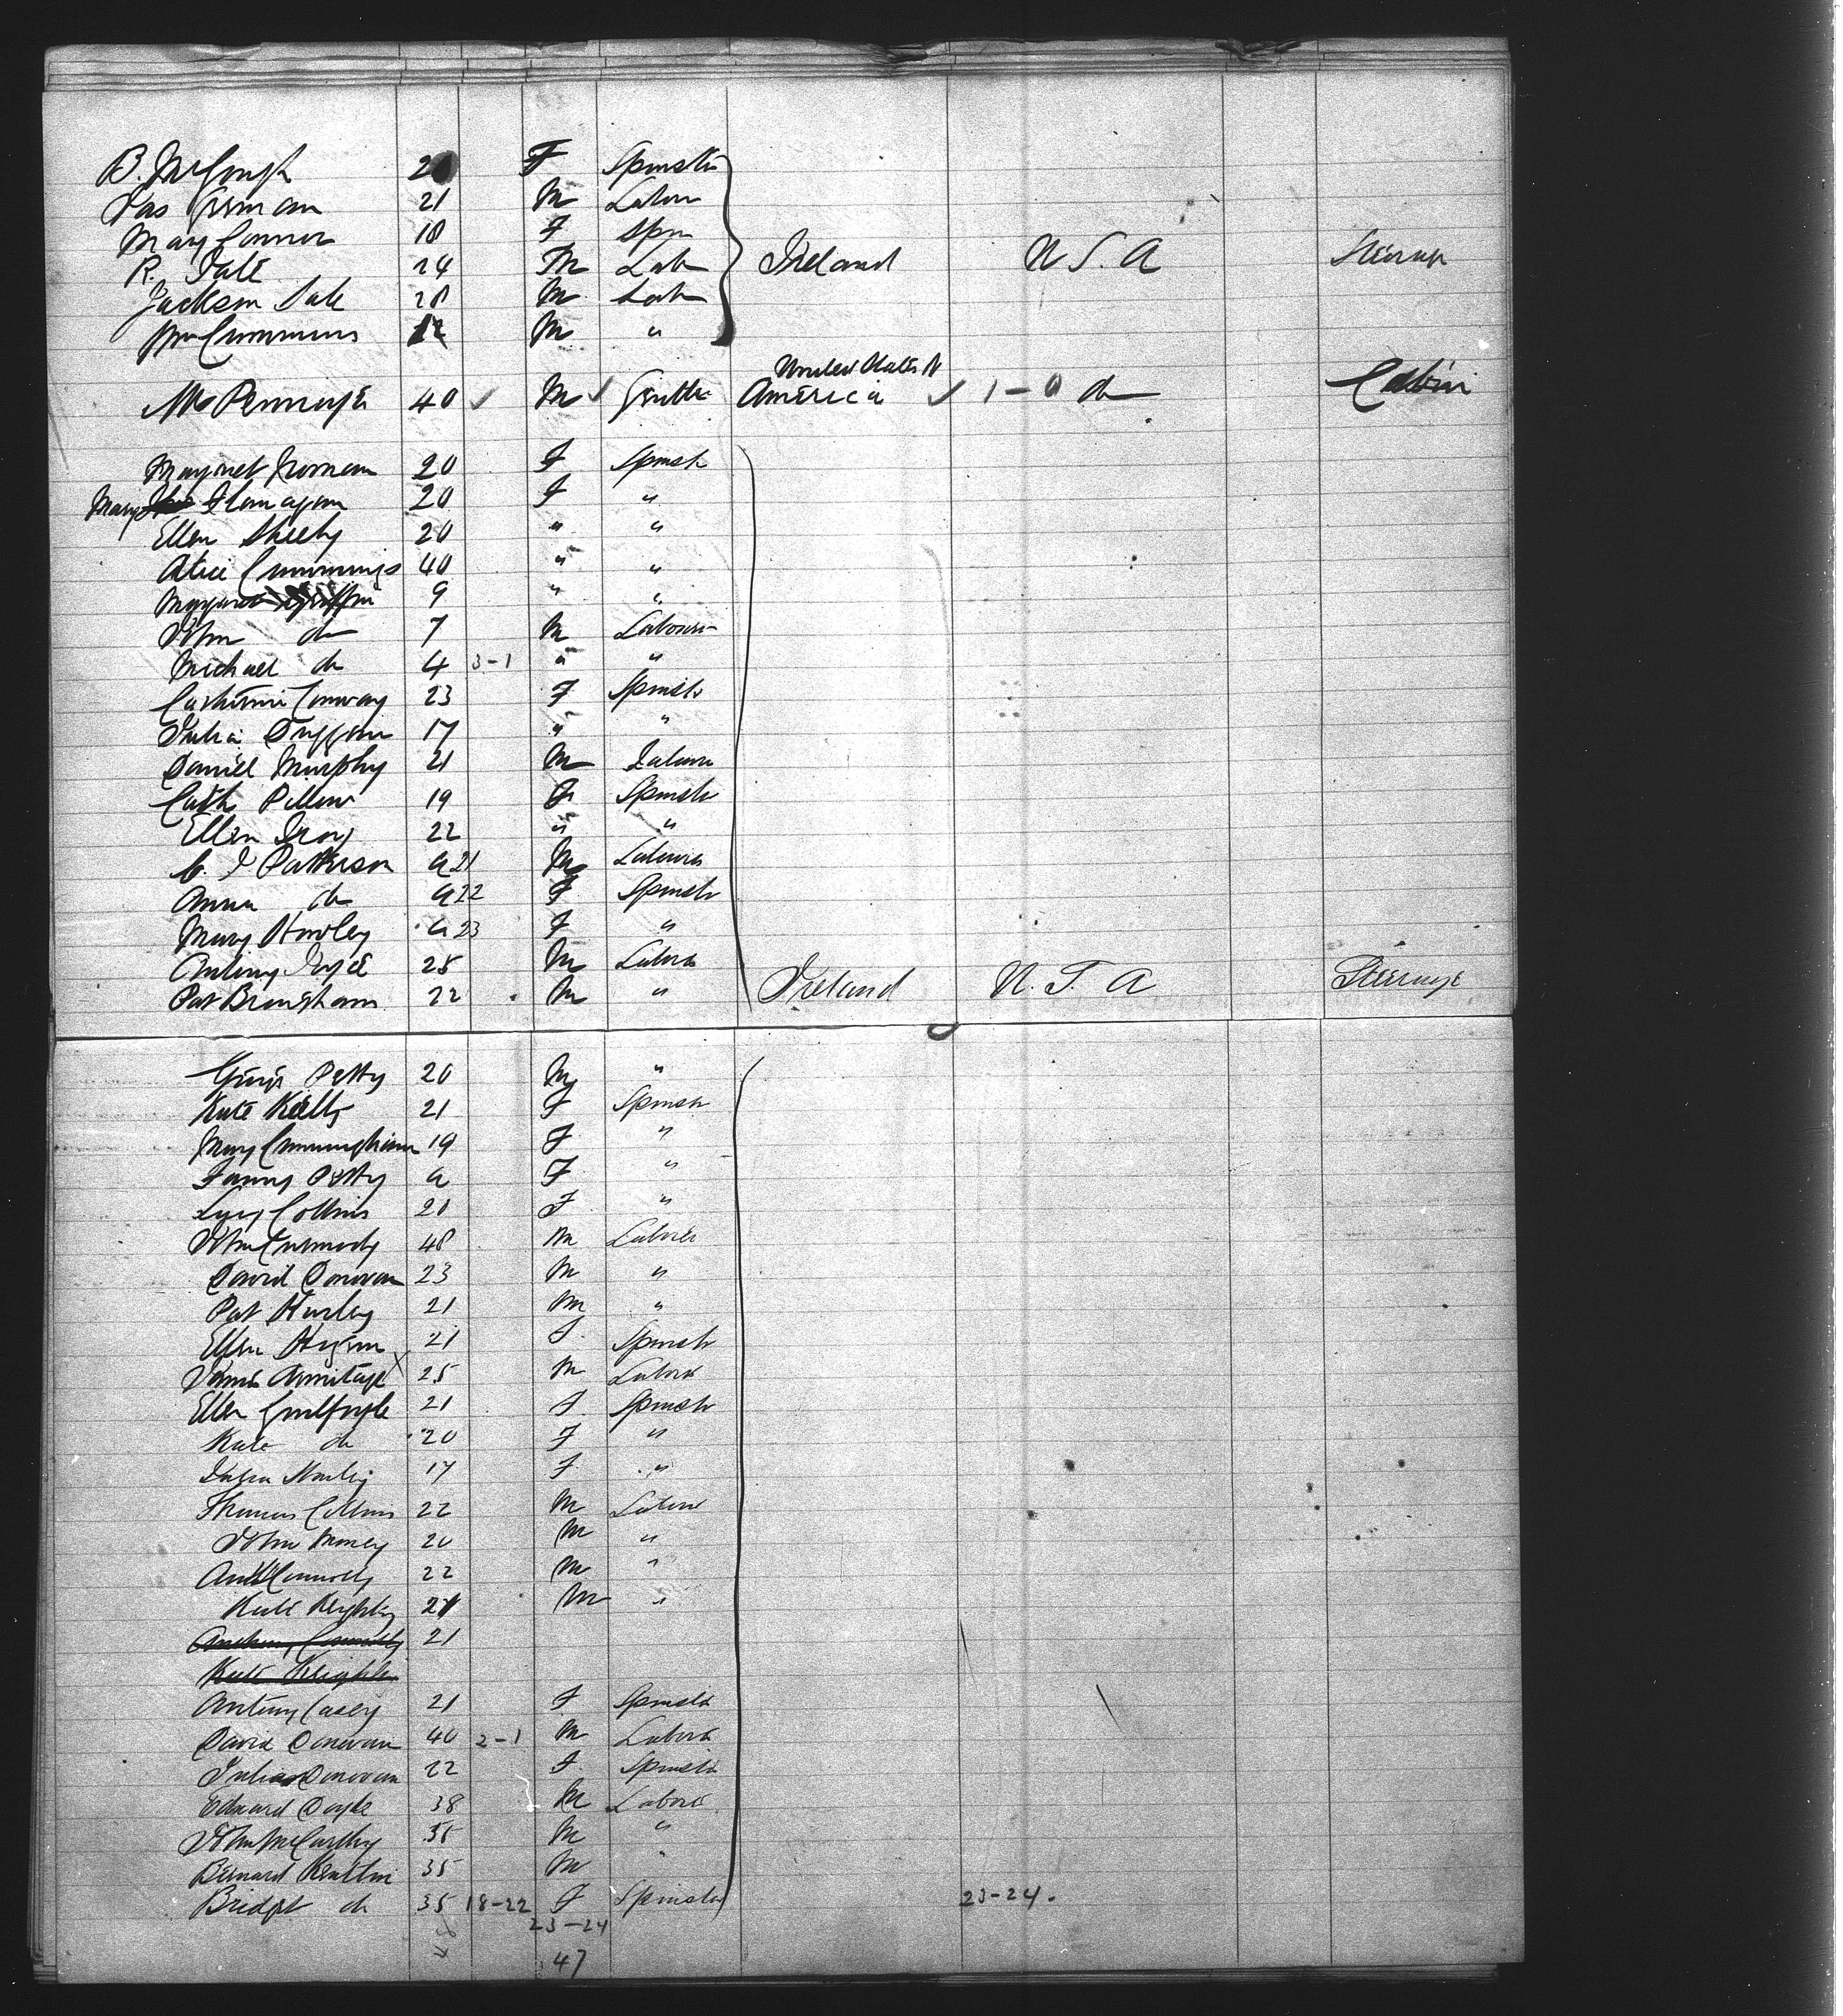 B. McGough 20 F Spinster
Jas Gorman 21 M Labor
Mary Connor 18 F Spin
R. Tate 24 M Lab Ireland U S. A Steerage
Jackson Tate 28 M Lab
Wm Cummins 12 M "
United States N
Mr 40 M Gentle America 1-0 do Cabin
Margret 20 F Spinst
Mary Flannagan 20 F "
Ellen Sheehy 20 " "
Alice Cummings 40 " "
Margaret Griffin 9 " "
John do 7 M Labourer
Michael do 4 3-1 " "
Catherine Conway 23 F Spinster
Julia Duggan 17 " "
Daniel Murphy 21 M Labour
Cath Dillon 19 F Spinster
Ellen 22 " "
C. J Patterson a 21 M Labourer
Anna do a 22 F Spinstr
Mary Hurley a 23 F "
Antony Joyce 25 M Labor
Pat Bringham 22 M " Ireland U. S. A Steerage
George Petty 20 M "
Kate Kelly 21 F Spinstr
Mary Cunningham 19 F "
Fanny Petty a F "
Lucy Collins 20 F "
John 48 M Laborer
David Donovan 23 M "
Pat Hurley 21 M "
Ellen 21 F. Spinstr
James Armitage X 25 M Labor
Ellen Guilfoyle 21 F. Spinstr
Kate do 20 F "
17 F. "
Thomas Collins 22 M Labour
John 20 M "
Connolly 22 M "
Kate 21 M "
Anthony Connolly 21
Kate Keightli
Antony Casey 21 F Spinster
David Donovan 40 2-1 M Labor
Julia Donovan 22 F. Spinster
Edward Doyle 38 M Labor
John McCarthy 35 M "
Bernard 35 M "
Bridget do 35 18-22 F Spinster 23-24.
23-24
47